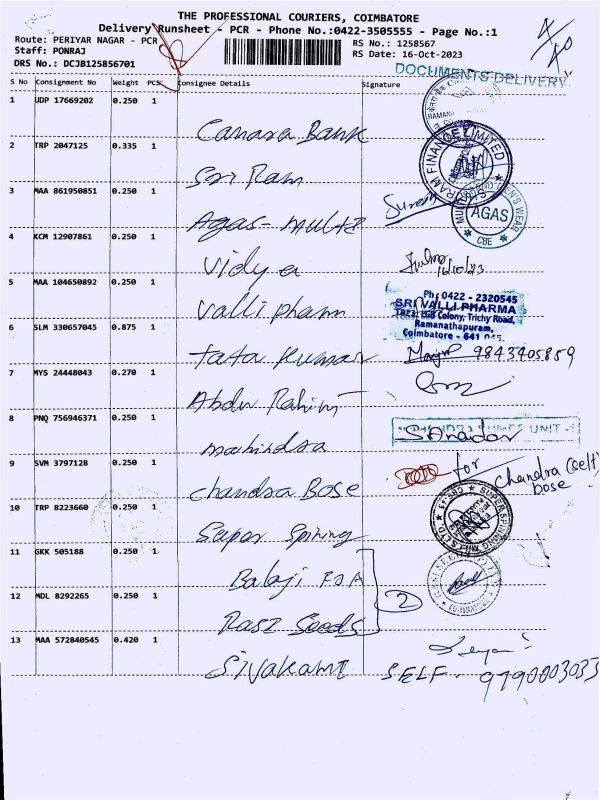 THE PROFESSIONAL COURIERS, COIMBATORE
Delivery Runsheet - PCR - Phone No.:0422-3505555 - Page No.:1
Route: PERIYAR NAGAR - PCR
RS No.: 1258567
Staff: PONRAJ
RS Date: 16-Oct-2023
DRS No.: DCJB125856701
4/40
DOCUMENTS DELIVERY
S No Consignment No Weight PCS Consignee Details Signature
1 UDP 17669202 0.250 1 Canara Bank
2 TRP 2047125 0.335 1 Sri Ram
FINANCE LIMITED
3 MAA 861950851 0.250 1 Agas - multi Suresh
AGAS
CBE
4 KCM 12907861 0.250 1 Vidya
16/10/23
5 MAA 104650892 0.250 1 Valli pharm
Ph: 0422 - 2320545
SRI VALLI PHARMA
Colony, Trichy Road,
Ramanathapuram,
Coimbatore - 641 045.
6 SLM 330657045 0.875 1 Tata Kumar 9843405859
7 MYS 24448043 0.270 1 Abdu Rahim
8 PNQ 756946371 0.250 1 mahindra
UNIT - I
9 SVM 3797128 0.250 1 Chandra Bose for Chandra (self) bose
10 TRP 8223660 0.250 1 Super Spining
SUPER SPINNING MILLS LTD
11 GKK 505188 0.250 1 Balaji
12 MDL 8292265 0.250 1 Rasi Seeds 2
13 MAA 572840545 0.420 1 Sivakami SELF - 9790003033